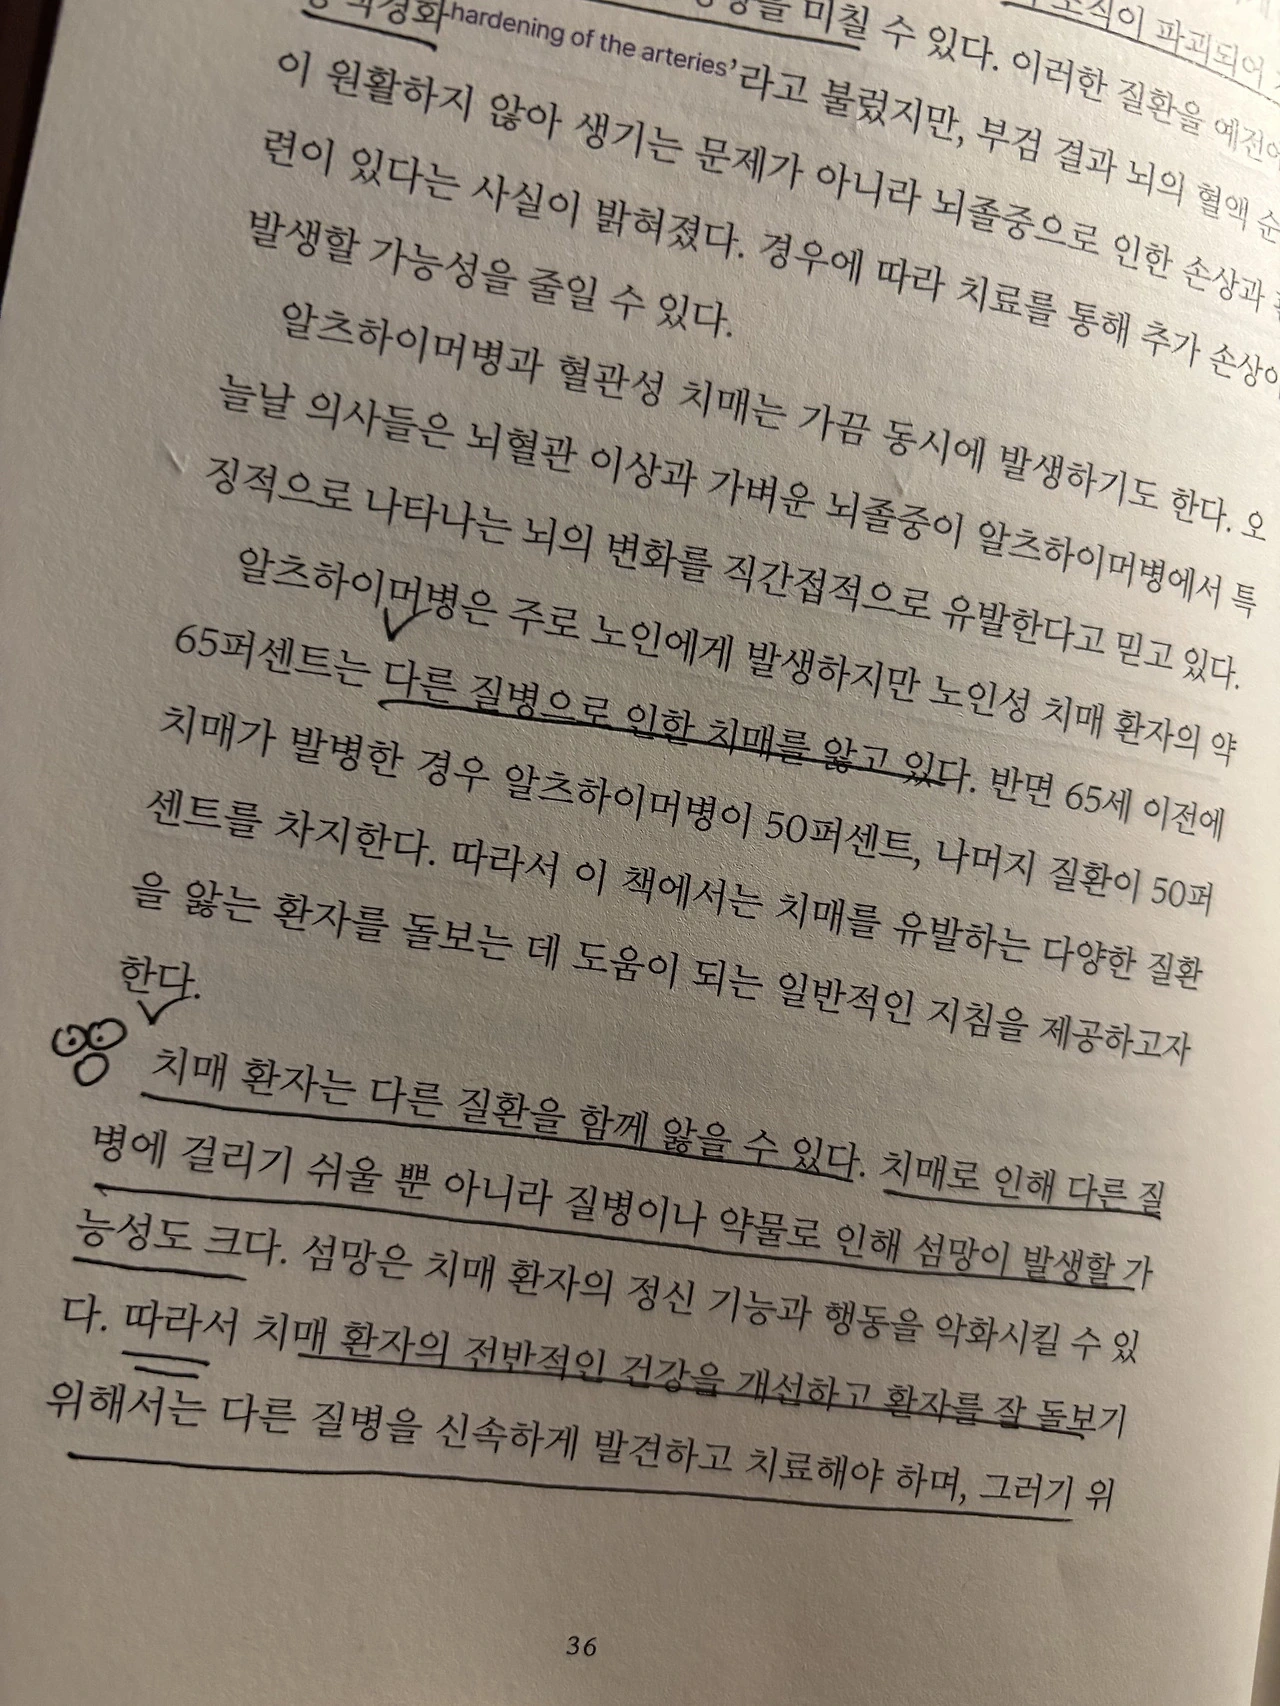 미칠 수 있다. 이러한 질환을 예전에
hardening of the arteries’라고 불렀지만, 부검 결과 뇌의 혈액 순
이 원활하지 않아 생기는 문제가 아니라 뇌졸중으로 인한 손상과
련이 있다는 사실이 밝혀졌다. 경우에 따라 치료를 통해 추가 손상이
발생할 가능성을 줄일 수 있다.
알츠하이머병과 혈관성 치매는 가끔 동시에 발생하기도 한다. 오
늘날 의사들은 뇌혈관 이상과 가벼운 뇌졸중이 알츠하이머병에서 특
징적으로 나타나는 뇌의 변화를 직간접적으로 유발한다고 믿고 있다.
알츠하이머병은 주로 노인에게 발생하지만 노인성 치매 환자의 약
65퍼센트는 다른 질병으로 인한 치매를 앓고 있다. 반면 65세 이전에
치매가 발병한 경우 알츠하이머병이 50퍼센트, 나머지 질환이 50퍼
센트를 차지한다. 따라서 이 책에서는 치매를 유발하는 다양한 질환
을 앓는 환자를 돌보는 데 도움이 되는 일반적인 지침을 제공하고자
한다.
치매 환자는 다른 질환을 함께 앓을 수 있다. 치매로 인해 다른 질
병에 걸리기 쉬울 뿐 아니라 질병이나 약물로 인해 섬망이 발생할 가
능성도 크다. 섬망은 치매 환자의 정신 기능과 행동을 악화시킬 수 있
다. 따라서 치매 환자의 전반적인 건강을 개선하고 환자를 잘 돌보기
위해서는 다른 질병을 신속하게 발견하고 치료해야 하며, 그러기 위
36